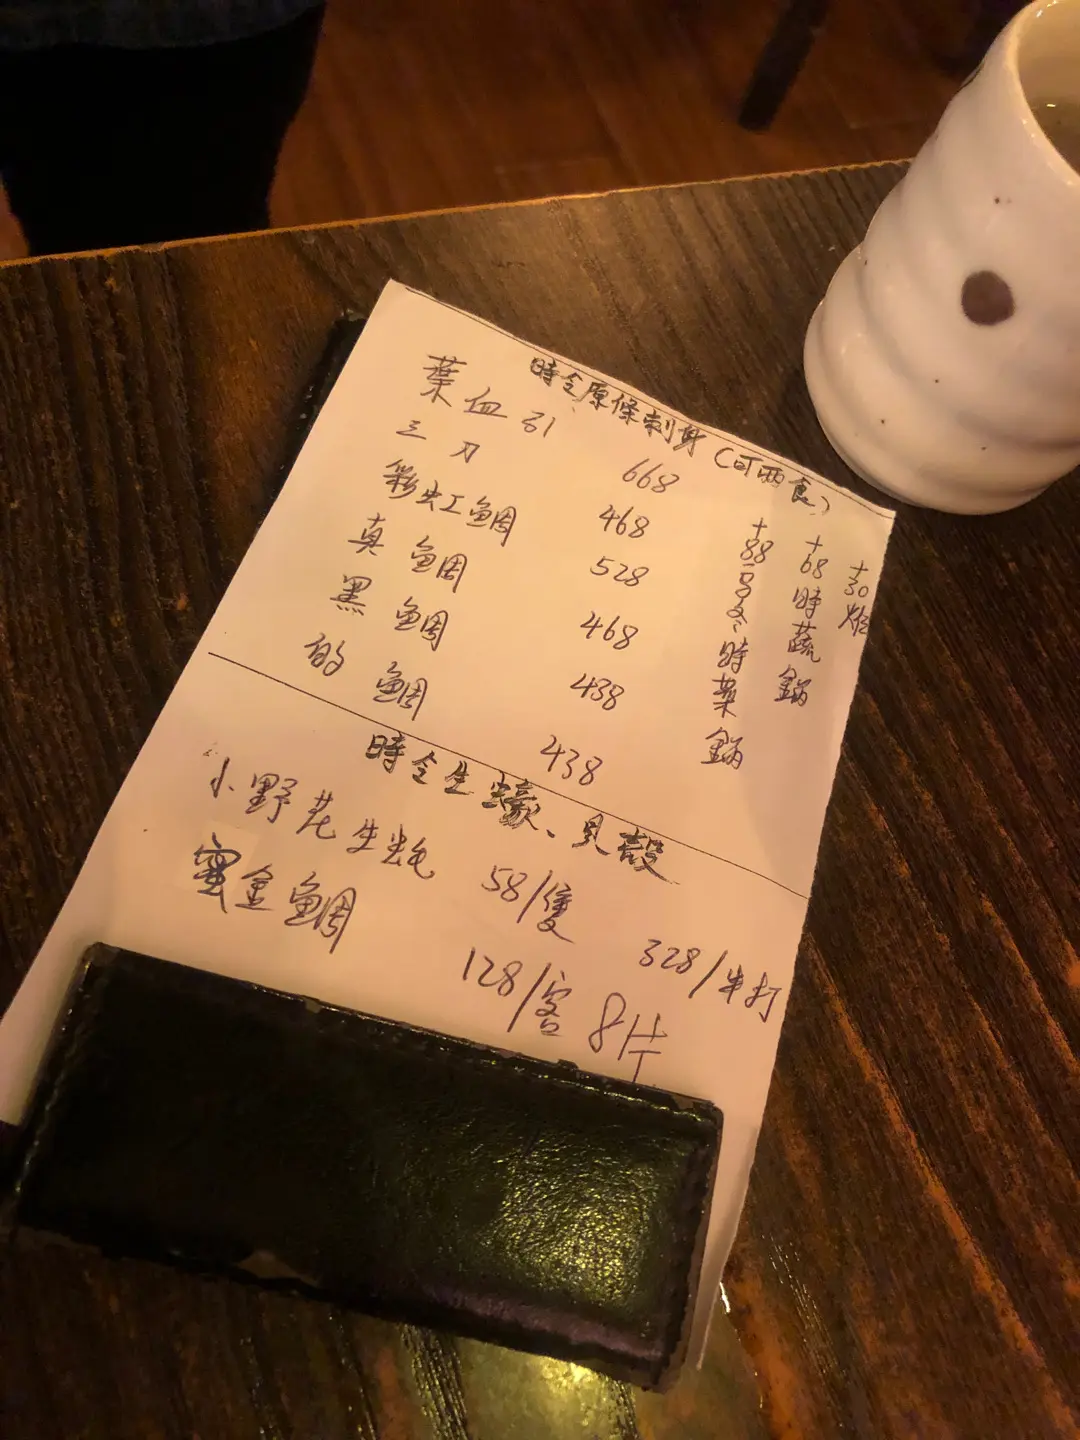 時令原條刺身(可兩食)
葉血引 668
三刀 468
彩虹鯛 528
真鯛 468
黑鯛 438
的鯛 438
+88 時菜鍋
+68時蔬鍋
+30
時令生蠔、貝殼
小野花生蚝 58/隻 328/半打
蜜金鯛 128/客 8片